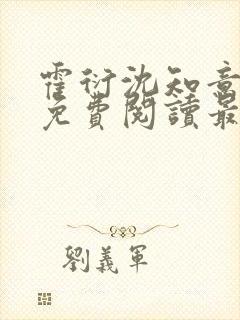 霍衍沈知意
免費閱讀最
劉義軍